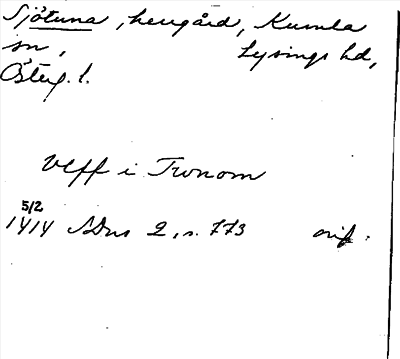 Sjötuna, herrgård, Kumla
sn, Lysings hd,
Österg. l.
Vlff i Tronom
5/2
1414 SDns 2, s. 773 orig.